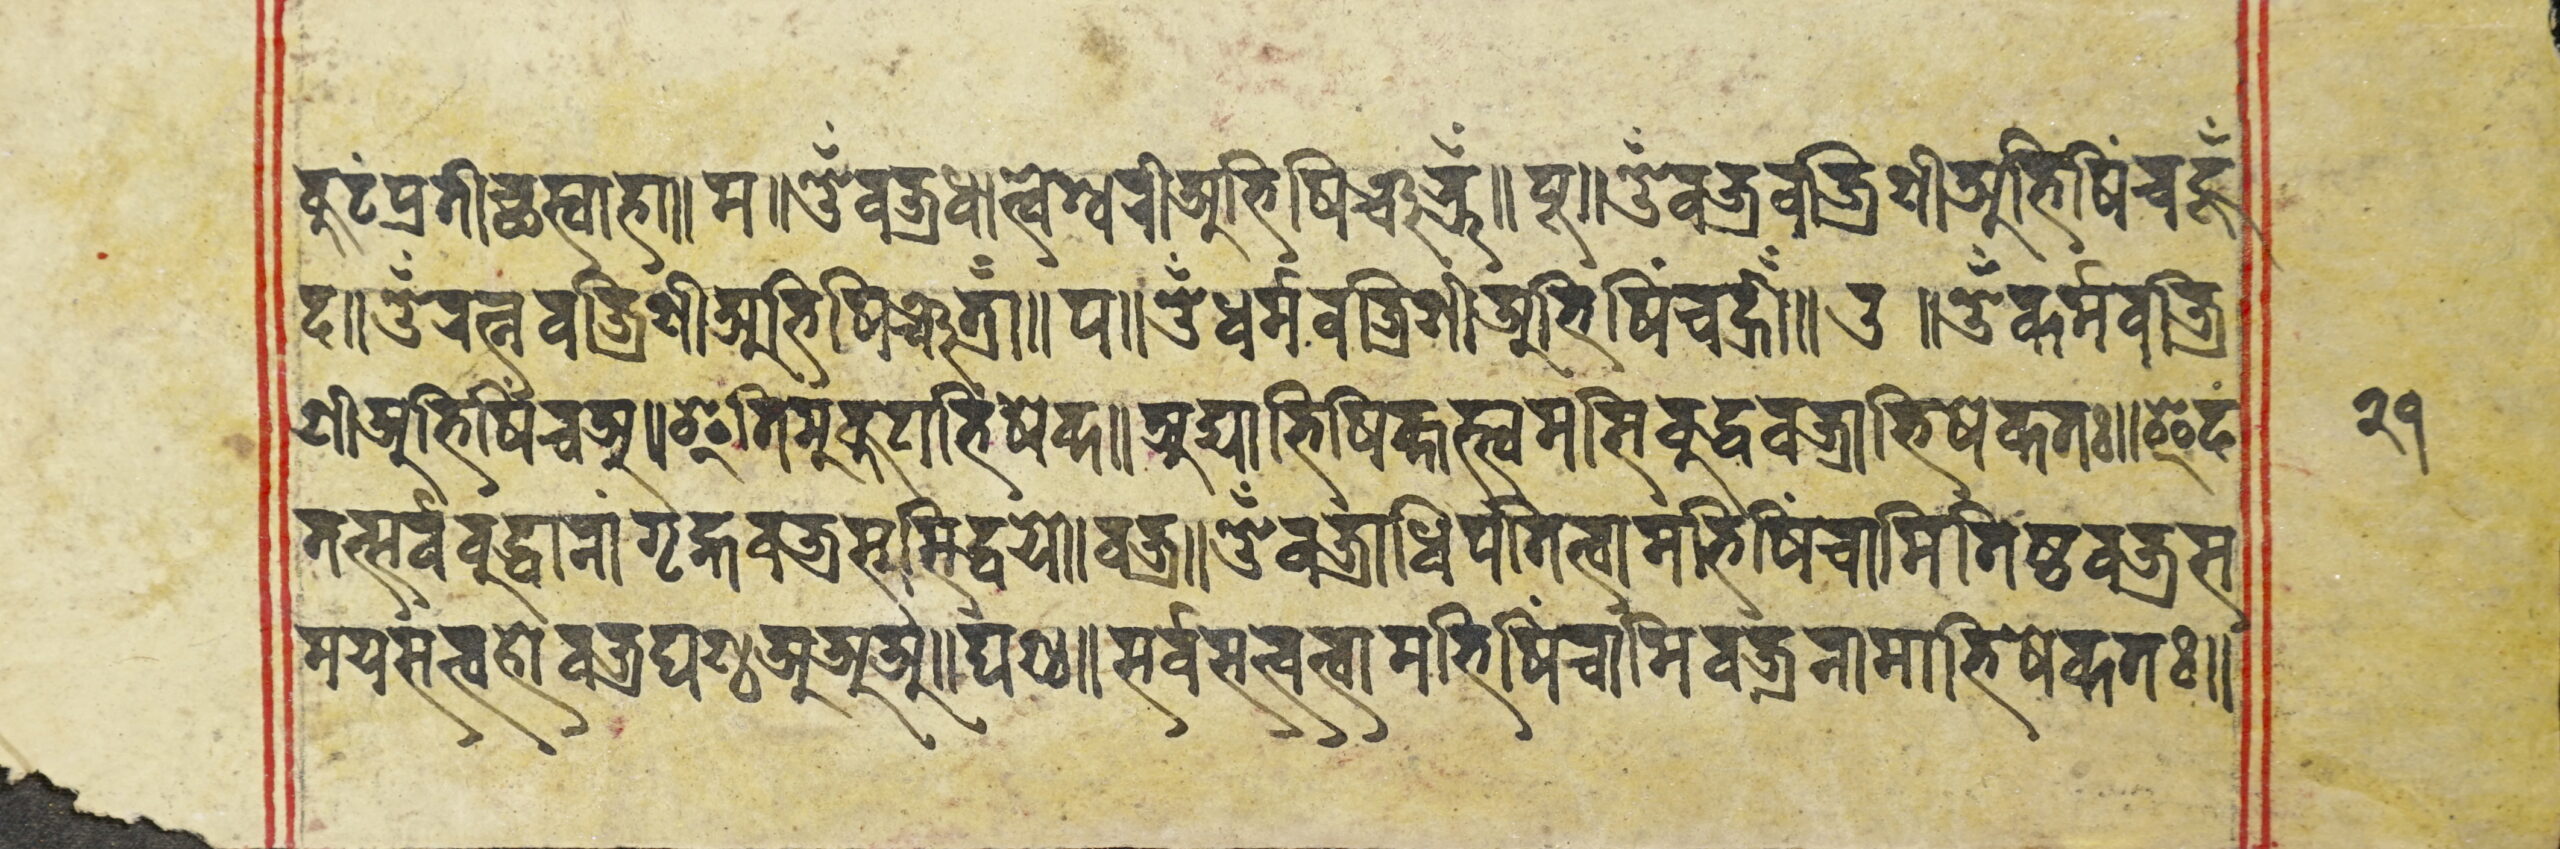 कुटंप्रतीच्छस्वाहा॥ म॥ ॐवज्रधात्वेश्वरीअभिषिञ्चहूँ॥ पू॥ ॐवज्रवज्रिणीअभिषिंचहूँ
द॥ ॐरत्नवज्रिणीअभिषिञ्चत्राँ॥ प॥ ॐधर्मवज्रिणीअभिषिंचह्रीँ॥ उ ॥ ॐकर्मवज्रि
णीअभिषिंचअ॥ इतिमुकुटाभिषेक॥ अद्याभिषिक्तस्त्वमसिबुद्धवज्राभिषेकतः॥ इदं
तत्सर्वबुद्धानांगृह्नवज्रसुसिद्धये॥ वज्र॥ ॐवज्राधिपतित्वामभिषिंचामितिष्ठवज्रस
मयसंत्वहोवज्रघण्ठअअअं॥ घंण्ठ॥ सर्वसत्वत्वामभिषिंचामिवज्रनामाभिषेकतः॥
२१